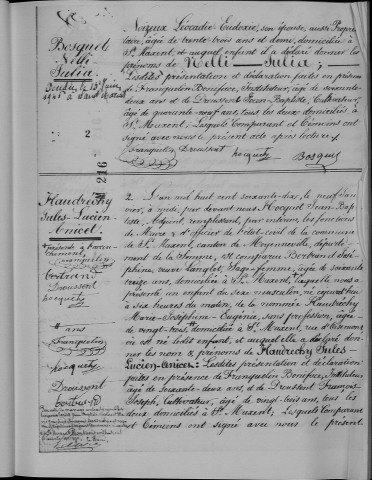 Bosquet
Nelli
Julia
2
Noizeux Léocadie Eudoxie, son épouse, aussi Propri
étaire, âgée de trente trois ans et demi, domiciliée à
St Maxent, et auquel enfant il a déclaré donner les
prénoms de Nelli Julia;
Lesdites présentation et déclaration faites en présence
de Franquelin Boniface, Instituteur, âgé de soixante
deux ans et de Dreusent Jean-Baptiste, Cultivateur,
âgé de quarante neuf ans, tous les deux domiciliés à
St Maxent. Lesquels Comparant et Témoins ont
signé avec nous le présent acte après lecture.
Franquelin Dreusent
Hecquet Bosquet
No 216
Haudrechy
Jules-Lucien-
Anicet
2. L'an mil huit cent soixante-dix, le neuf Jan
vier, à midi, par devant nous Hecquet Jean Bap
tiste Adjoint remplissant, par intérim, les fonctions
de Maire & d'officier de l'état-civil de la commune
de St Maxent, canton de Moyenneville, départe
ment de la Somme, est comparue Bertrand José
phine, veuve Langlet, Sage-femme, âgée de soixante
treize ans, domiciliée à St Maxent, laquelle nous a
présenté un enfant du sexe masculin, né aujourd'hui
à six heures du matin, de la nommée Haudrechy
Marie-Joséphine-Eugénie, sans profession, âgée
de vingt-trois # domiciliée à St Maxent, rue
où est né ledit enfant, et auquel elle a déclaré don
ner les nom & prénoms de Haudrechy Jules
Lucien-Anicet: Lesdites présentation et déclaration
faites en présence de Franquelin Boniface, Instituteur
âgé de soixante-deux ans et de Dreusent François
Joseph, Cultivateur, âgé de vingt-trois ans, tous les
deux domiciliés à St Maxent; Lesquels Comparante
et Témoins ont signé avec nous le présent
# ans
Franquelin
Hecquet
Dreusent